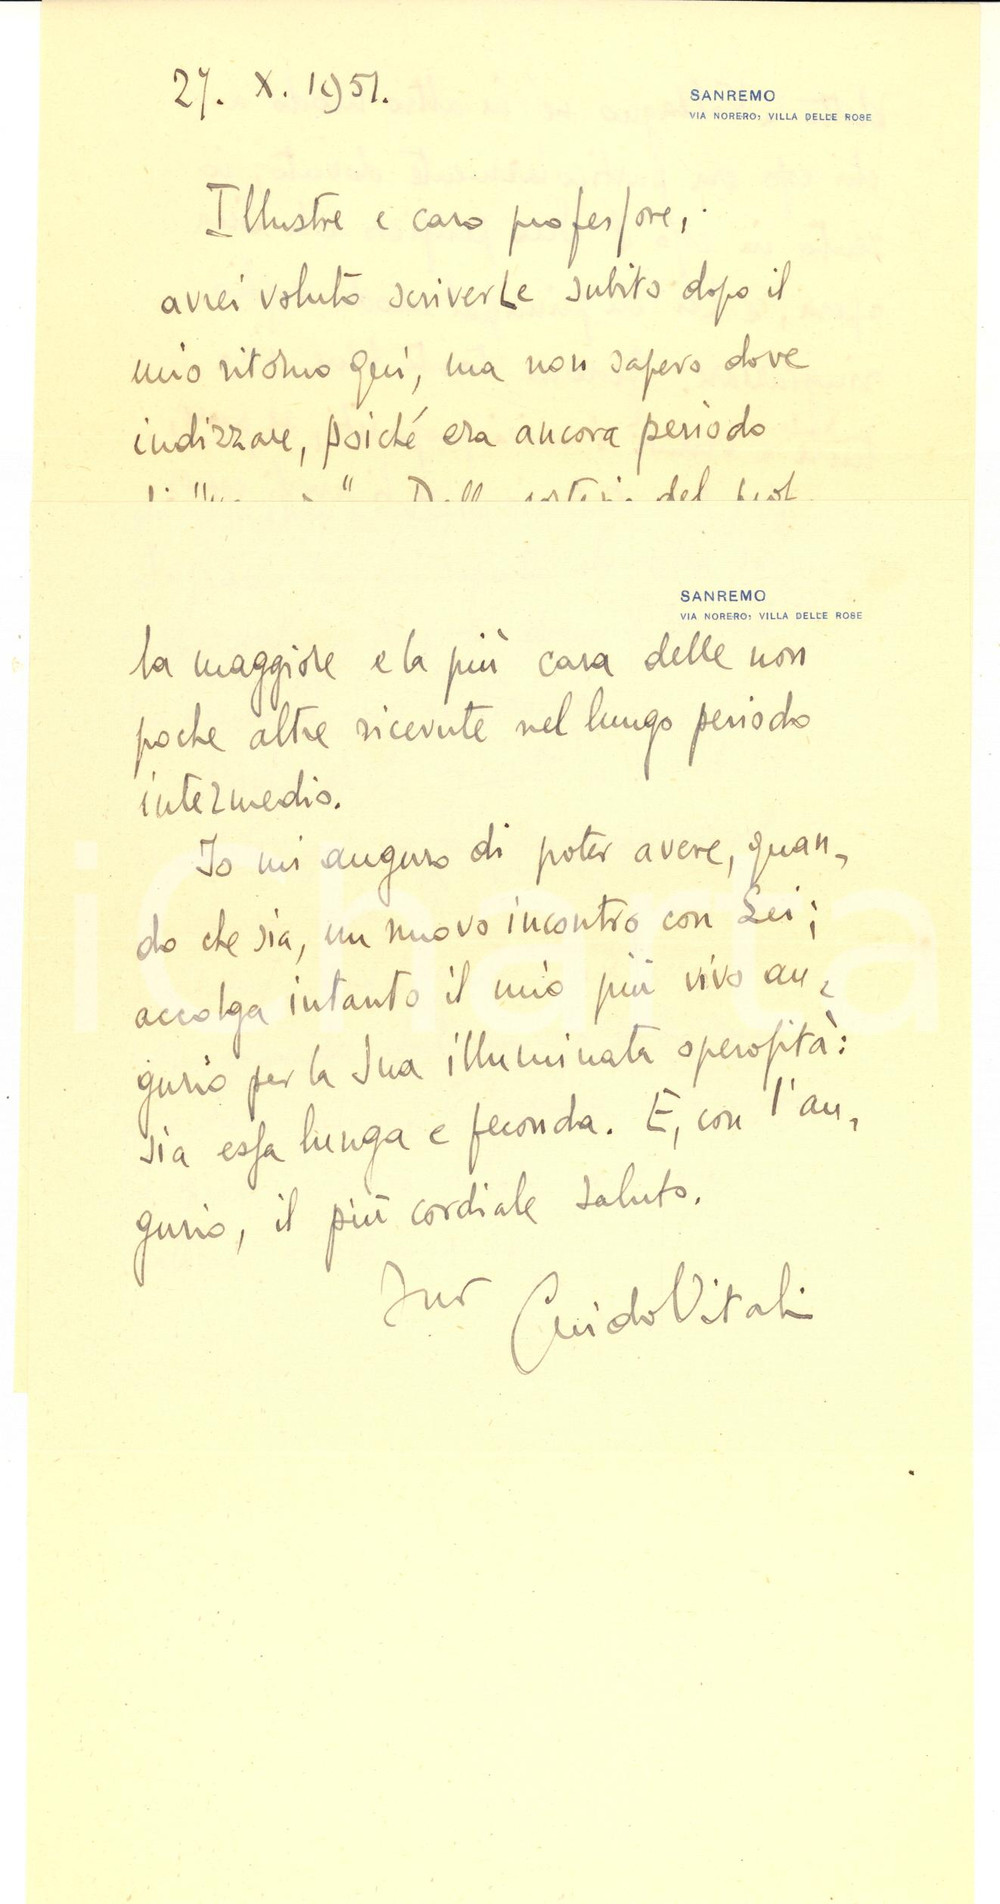 27. X. 1951.
SANREMO
VIA NORERO: VILLA DELLE ROSE
Illustre e caro professore,
avrei voluto scriverLe subito dopo il
mio ritorno qui, ma non sapevo dove
indizzare, poiché era ancora periodo
del
SANREMO
VIA NORERO: VILLA DELLE ROSE
la maggiore e la più cara delle non
poche altre ricevute nel lungo periodo
intermedio.
Io mi auguro di poter avere, quan-
do che sia, un nuovo incontro con Lei;
accolga intanto il mio più vivo au-
gurio per la Sua illuminata operosità:
sia essa lunga e feconda. E, con l'au-
gurio, il più cordiale saluto.
Suo Guido Vitali
iCharta